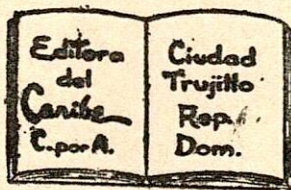 Editora
del
Caribe
C. por A.
Ciudad
Trujillo
Rep.
Dom.